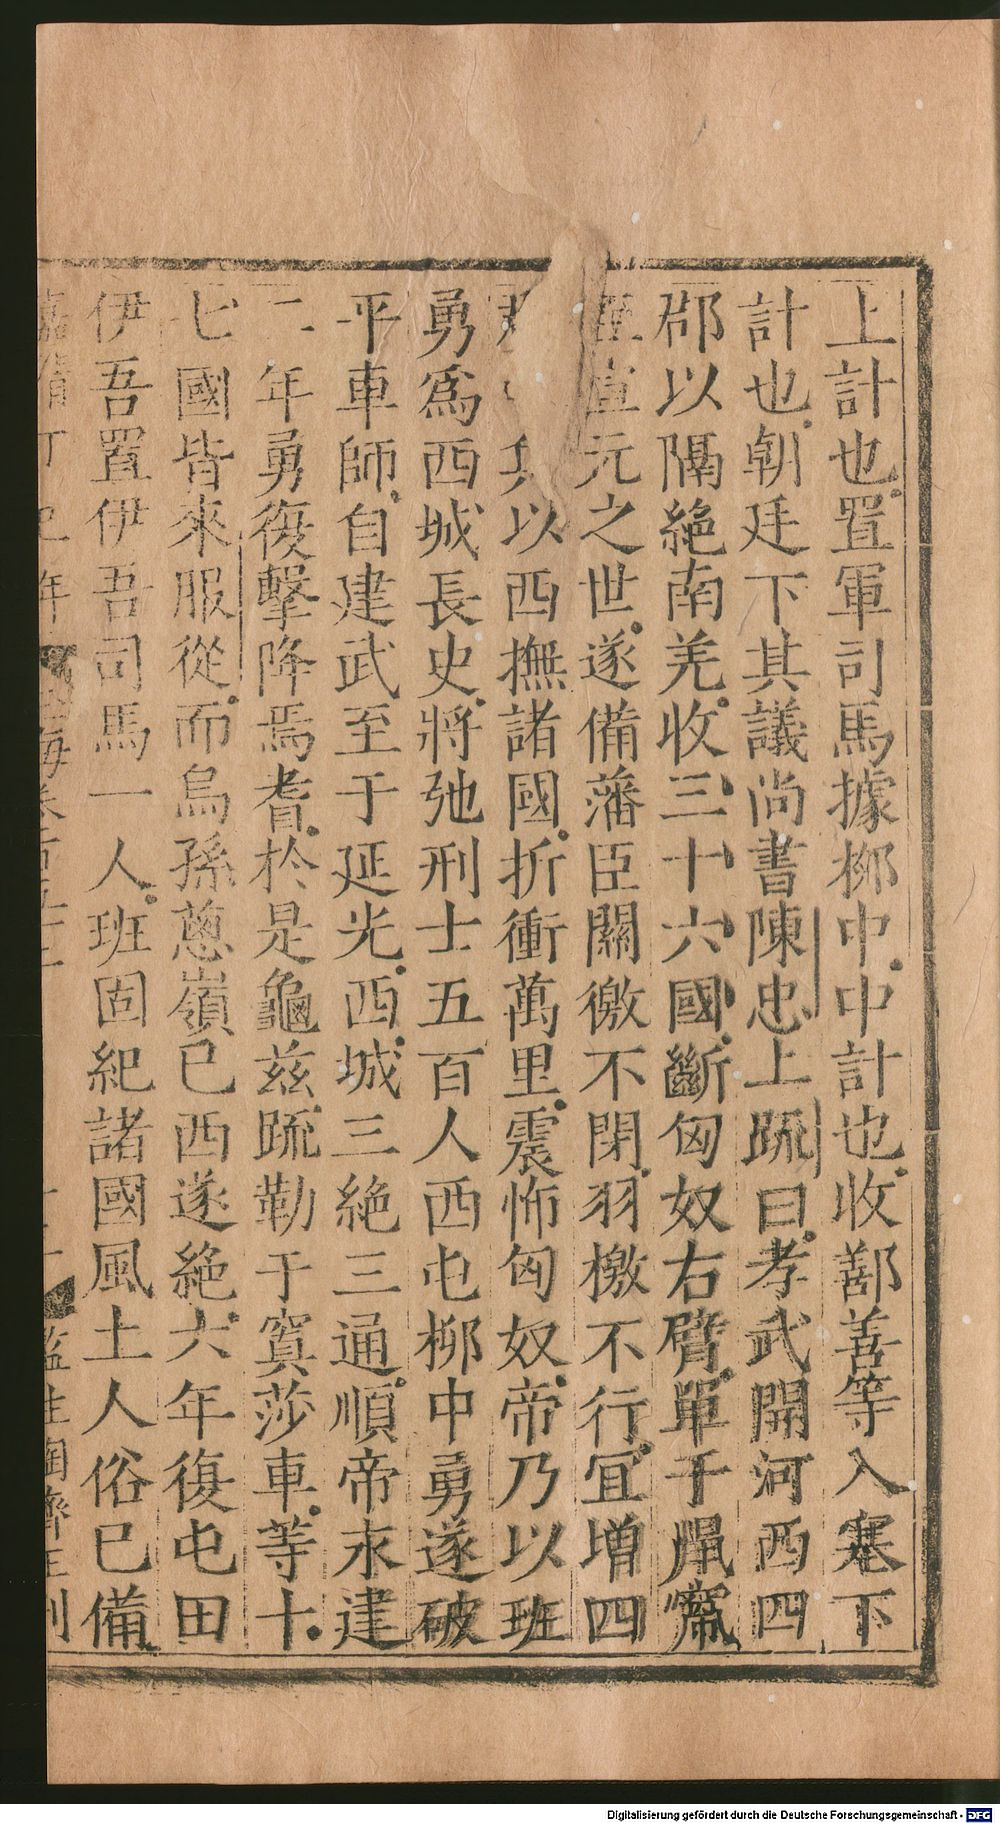 上計也置軍司馬據柳中中計也收鄯善等入塞下
計也朝廷下其議尚書陳忠上疏曰孝武開河西四
郡以隔絕南羌收三十六國斷匈奴右臂單于竄
宣元之世遂備藩臣關徼不閉羽檄不行宜增四
以西撫諸國折衝萬里震怖匈奴帝乃以班
勇爲西城長史將弛刑士五百人西屯柳中勇遂破
平車師自建武至于延光西城三絕三通順帝永建
二年勇復擊降焉耆於是龜兹疏勒于窴莎車等十
七國皆來服從而烏孫蔥嶺已西遂絕六年復屯田
伊吾置伊吾司馬一人班固紀諸國風土人俗已備
年 海卷 監生 刊
Digitalisierung gefördert durch die Deutsche Forschungsgemeinschaft - DFG